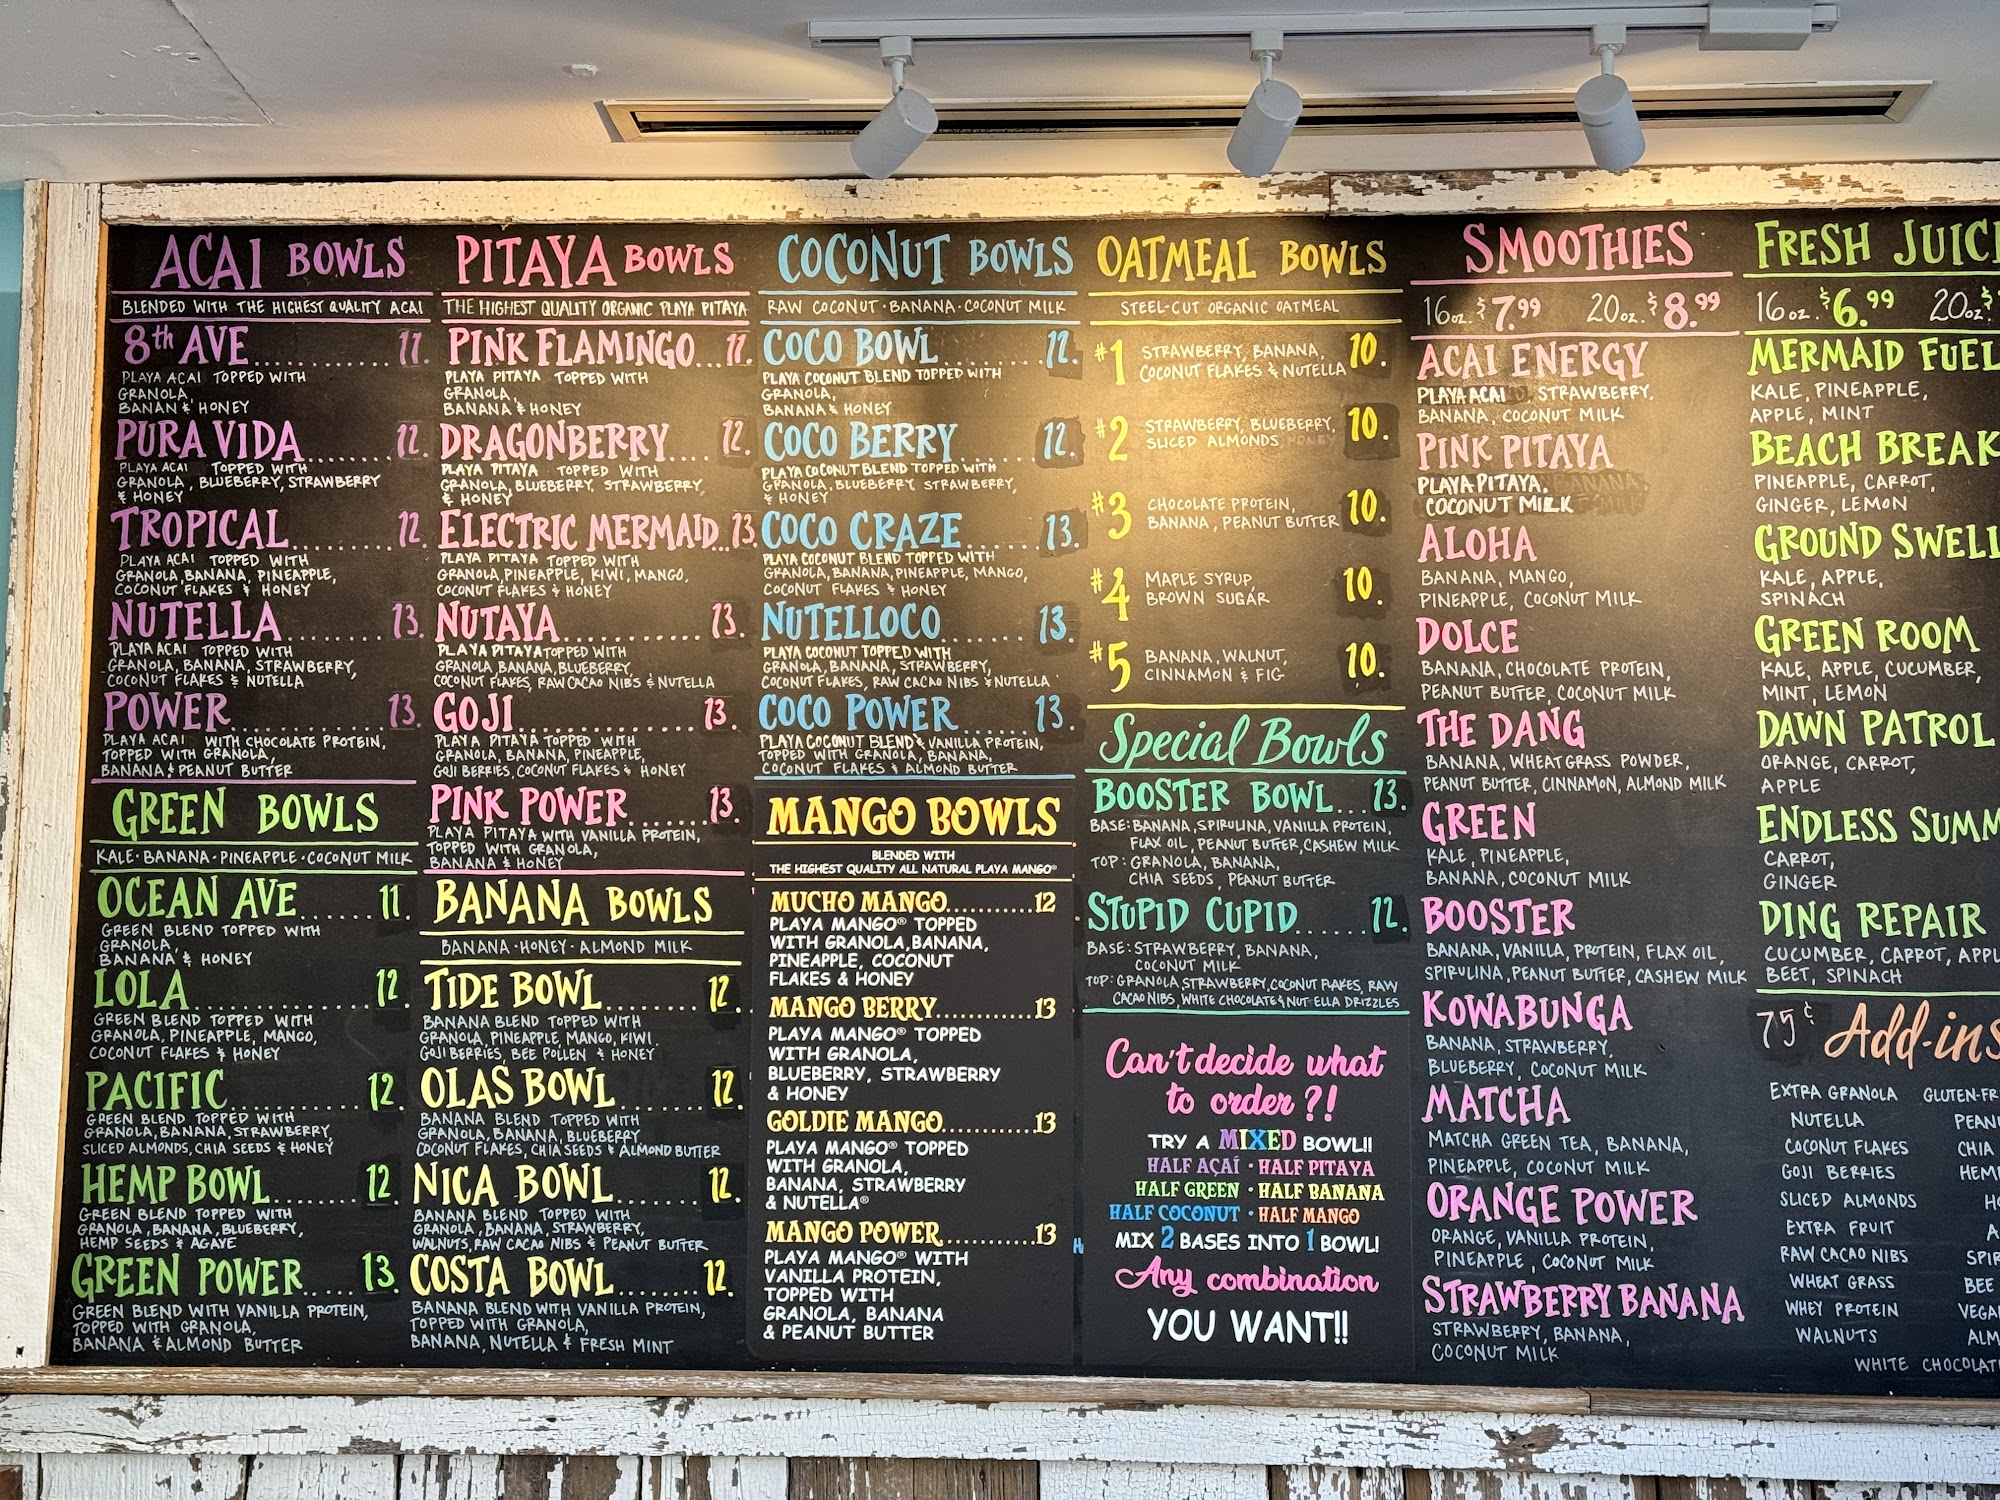 ACAI BOWLS
BLENDED WITH THE HIGHEST QUALITY ACAI
8th AVE.............. 11.
PLAYA ACAI TOPPED WITH
GRANOLA,
BANAN & HONEY
PURA VIDA.......... 12.
PLAYA ACAI TOPPED WITH
GRANOLA, BLUEBERRY, STRAWBERRY
& HONEY
TROPICAL........... 12.
PLAYA ACAI TOPPED WITH
GRANOLA, BANANA, PINEAPPLE,
COCONUT FLAKES & HONEY
NUTELLA............ 13.
PLAYA ACAI TOPPED WITH
GRANOLA, BANANA, STRAWBERRY,
COCONUT FLAKES & NUTELLA
POWER............... 13.
PLAYA ACAI WITH CHOCOLATE PROTEIN,
TOPPED WITH GRANOLA,
BANANA & PEANUT BUTTER
GREEN BOWLS
KALE · BANANA · PINEAPPLE · COCONUT MILK
OCEAN AVE...... 11.
GREEN BLEND TOPPED WITH
GRANOLA,
BANANA & HONEY
LOLA.................. 12.
GREEN BLEND TOPPED WITH
GRANOLA, PINEAPPLE, MANGO,
COCONUT FLAKES & HONEY
PACIFIC.............. 12.
GREEN BLEND TOPPED WITH
GRANOLA, BANANA, STRAWBERRY,
SLICED ALMONDS, CHIA SEEDS & HONEY
HEMP BOWL......... 12.
GREEN BLEND TOPPED WITH
GRANOLA, BANANA, BLUEBERRY,
HEMP SEEDS & AGAVE
GREEN POWER..... 13.
GREEN BLEND WITH VANILLA PROTEIN,
TOPPED WITH GRANOLA,
BANANA & ALMOND BUTTER
PITAYA BOWLS
THE HIGHEST QUALITY ORGANIC PLAYA PITAYA
PINK FLAMINGO... 11.
PLAYA PITAYA TOPPED WITH
GRANOLA,
BANANA & HONEY
DRAGONBERRY.... 12.
PLAYA PITAYA TOPPED WITH
GRANOLA, BLUEBERRY, STRAWBERRY,
& HONEY
ELECTRIC MERMAID... 13.
PLAYA PITAYA TOPPED WITH
GRANOLA, PINEAPPLE, KIWI, MANGO,
COCONUT FLAKES & HONEY
NUTAYA............. 13.
PLAYA PITAYA TOPPED WITH
GRANOLA, BANANA, BLUEBERRY,
COCONUT FLAKES, RAW CACAO NIBS & NUTELLA
GOJI.................. 13.
PLAYA PITAYA TOPPED WITH
GRANOLA, BANANA, PINEAPPLE,
GOJI BERRIES, COCONUT FLAKES & HONEY
PINK POWER....... 13.
PLAYA PITAYA WITH VANILLA PROTEIN,
TOPPED WITH GRANOLA,
BANANA & HONEY
BANANA BOWLS
BANANA · HONEY · ALMOND MILK
TIDE BOWL......... 12.
BANANA BLEND TOPPED WITH
GRANOLA, PINEAPPLE, MANGO, KIWI,
GOJI BERRIES, BEE POLLEN & HONEY
OLAS BOWL........ 12.
BANANA BLEND TOPPED WITH
GRANOLA, BANANA, BLUEBERRY
COCONUT FLAKES, CHIA SEEDS & ALMOND BUTTER
NICA BOWL........ 12.
BANANA BLEND TOPPED WITH
GRANOLA, BANANA, STRAWBERRY,
WALNUTS, RAW CACAO NIBS & PEANUT BUTTER
COSTA BOWL....... 12.
BANANA BLEND WITH VANILLA PROTEIN,
TOPPED WITH GRANOLA,
BANANA, NUTELLA & FRESH MINT
COCONUT BOWLS
RAW COCONUT · BANANA · COCONUT MILK
COCO BOWL........ 12.
PLAYA COCONUT BLEND TOPPED WITH
GRANOLA,
BANANA & HONEY
COCO BERRY...... 12.
PLAYA COCONUT BLEND TOPPED WITH
GRANOLA, BLUEBERRY, STRAWBERRY,
& HONEY
COCO CRAZE...... 13.
PLAYA COCONUT BLEND TOPPED WITH
GRANOLA, BANANA, PINEAPPLE, MANGO,
COCONUT FLAKES & HONEY
NUTELLOCO....... 13.
PLAYA COCONUT TOPPED WITH
GRANOLA, BANANA, STRAWBERRY,
COCONUT FLAKES, RAW CACAO NIBS & NUTELLA
COCO POWER...... 13.
PLAYA COCONUT BLEND & VANILLA PROTEIN,
TOPPED WITH GRANOLA, BANANA,
COCONUT FLAKES & ALMOND BUTTER
MANGO BOWLS
BLENDED WITH
THE HIGHEST QUALITY ALL NATURAL PLAYA MANGO®
MUCHO MANGO...........12
PLAYA MANGO® TOPPED
WITH GRANOLA, BANANA,
PINEAPPLE, COCONUT
FLAKES & HONEY
MANGO BERRY............13
PLAYA MANGO® TOPPED
WITH GRANOLA,
BLUEBERRY, STRAWBERRY
& HONEY
GOLDIE MANGO............13
PLAYA MANGO® TOPPED
WITH GRANOLA,
BANANA, STRAWBERRY
& NUTELLA®
MANGO POWER............13
PLAYA MANGO® WITH
VANILLA PROTEIN,
TOPPED WITH
GRANOLA, BANANA
& PEANUT BUTTER
OATMEAL BOWLS
STEEL-CUT ORGANIC OATMEAL
#1 STRAWBERRY, BANANA, 10.
COCONUT FLAKES & NUTELLA
#2 STRAWBERRY, BLUEBERRY, 10.
SLICED ALMONDS
#3 CHOCOLATE PROTEIN, 10.
BANANA, PEANUT BUTTER
#4 MAPLE SYRUP, 10.
BROWN SUGAR
#5 BANANA, WALNUT, 10.
CINNAMON & FIG
Special Bowls
BOOSTER BOWL... 13.
BASE: BANANA, SPIRULINA, VANILLA PROTEIN,
FLAX OIL, PEANUT BUTTER, CASHEW MILK
TOP: GRANOLA, BANANA,
CHIA SEEDS, PEANUT BUTTER
STUPID CUPID....... 12.
BASE: STRAWBERRY, BANANA,
COCONUT MILK
TOP: GRANOLA STRAWBERRY, COCONUT FLAKES, RAW
CACAO NIBS, WHITE CHOCOLATE & NUTELLA DRIZZLES
Can't decide what
to order?!
TRY A MIXED BOWL!!
HALF AÇAÍ · HALF PITAYA
HALF GREEN · HALF BANANA
HALF COCONUT · HALF MANGO
MIX 2 BASES INTO 1 BOWL!
Any combination
YOU WANT!!
SMOOTHIES
16oz. $7.99 20oz. $8.99
ACAI ENERGY
PLAYA ACAI, STRAWBERRY,
BANANA, COCONUT MILK
PINK PITAYA
PLAYA PITAYA, BANANA,
COCONUT MILK
ALOHA
BANANA, MANGO,
PINEAPPLE, COCONUT MILK
DOLCE
BANANA, CHOCOLATE PROTEIN,
PEANUT BUTTER, COCONUT MILK
THE DANG
BANANA, WHEATGRASS POWDER,
PEANUT BUTTER, CINNAMON, ALMOND MILK
GREEN
KALE, PINEAPPLE,
BANANA, COCONUT MILK
BOOSTER
BANANA, VANILLA, PROTEIN, FLAX OIL,
SPIRULINA, PEANUT BUTTER, CASHEW MILK
KOWABUNGA
BANANA, STRAWBERRY,
BLUEBERRY, COCONUT MILK
MATCHA
MATCHA GREEN TEA, BANANA,
PINEAPPLE, COCONUT MILK
ORANGE POWER
ORANGE, VANILLA PROTEIN,
PINEAPPLE, COCONUT MILK
STRAWBERRY BANANA
STRAWBERRY, BANANA,
COCONUT MILK
FRESH JUIC
16oz. $6.99 20oz. $
MERMAID FUEL
KALE, PINEAPPLE,
APPLE, MINT
BEACH BREAK
PINEAPPLE, CARROT,
GINGER, LEMON
GROUND SWELL
KALE, APPLE,
SPINACH
GREEN ROOM
KALE, APPLE, CUCUMBER,
MINT, LEMON
DAWN PATROL
ORANGE, CARROT,
APPLE
ENDLESS SUMM
CARROT,
GINGER
DING REPAIR
CUCUMBER, CARROT, APPL
BEET, SPINACH
75¢ Add-ins
EXTRA GRANOLA GLUTEN-FR
NUTELLA PEAN
COCONUT FLAKES CHIA
GOJI BERRIES HEM
SLICED ALMONDS HO
EXTRA FRUIT A
RAW CACAO NIBS SPIR
WHEAT GRASS BEE
WHEY PROTEIN VEGA
WALNUTS ALM
WHITE CHOCOLAT